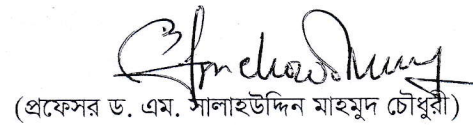 (প্রফেসর ড. এম. সালাহউদ্দিন মাহমুদ চৌধুরী)